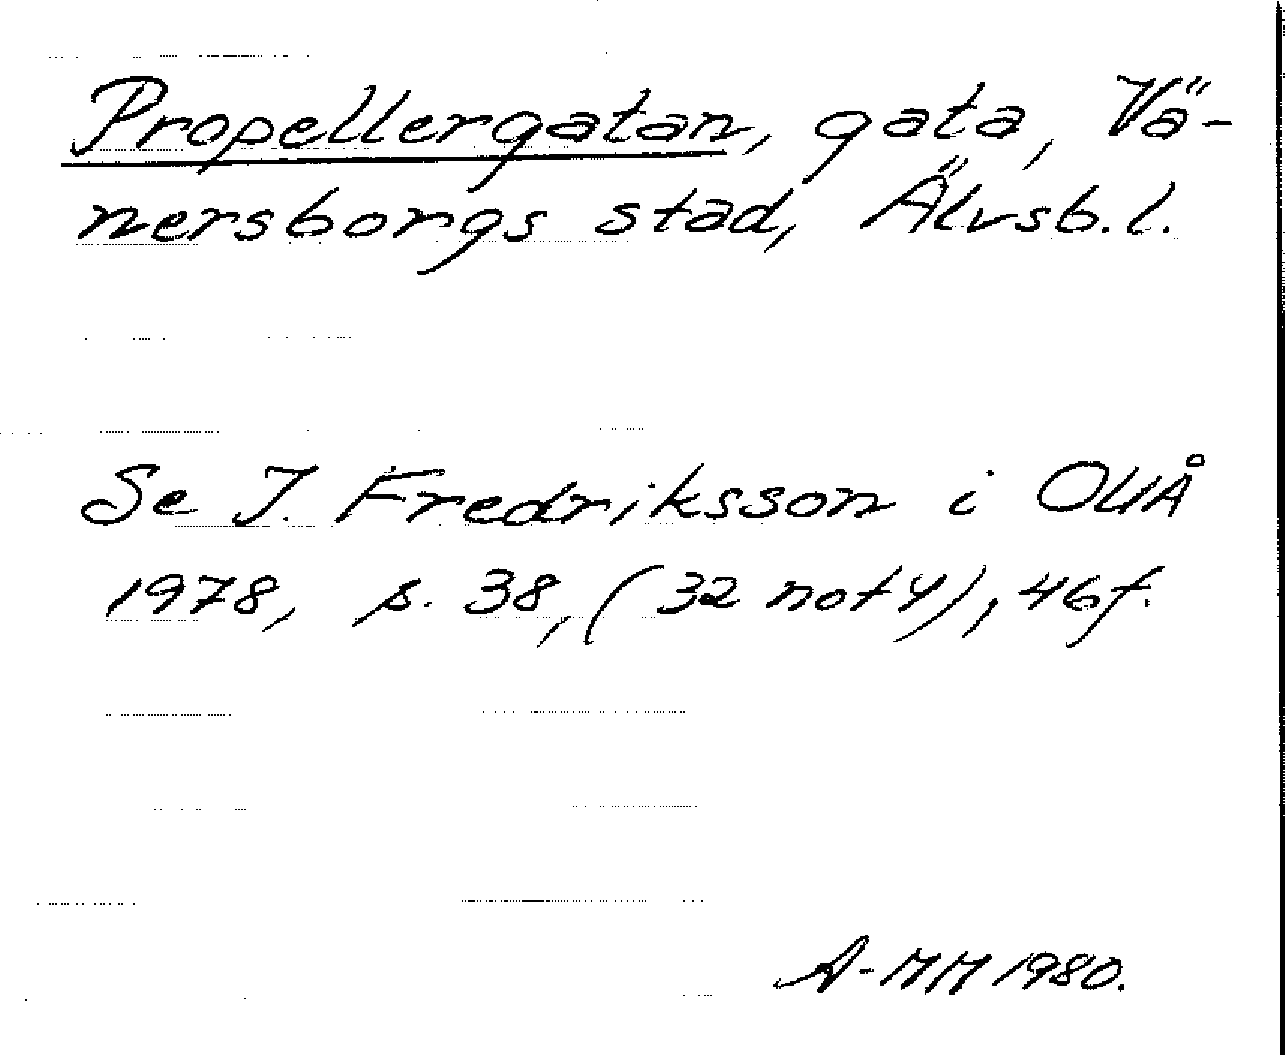 Propellergatan, gata, Vä-
nersborgs stad, Älvsb. l.
Se I. Fredriksson i OUÅ
1978, s. 38, (32 not 4), 46f.
A-MM 1980.